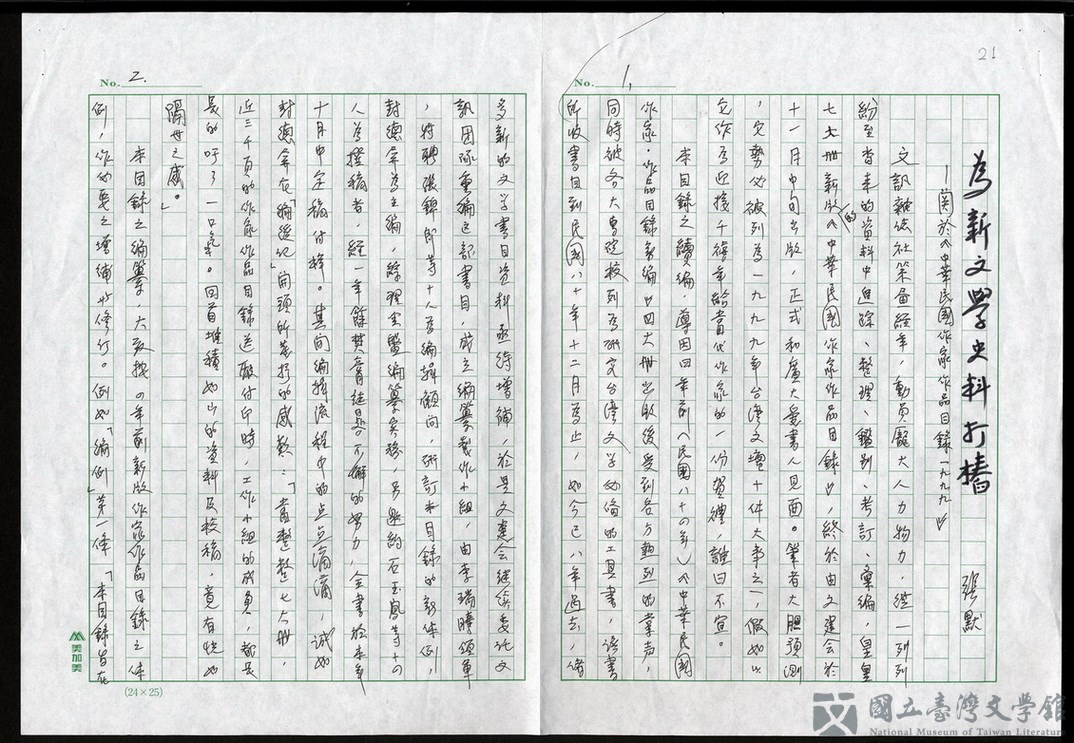 21
No. 1.
為新文學史料打樁
—関於《中華民國作家作品目錄一九九九》
張默
文訊雜誌社策畫經年,動員龐大人力物力,從一列列
紛至沓來的資料中追踪、整理、鑑別、考訂、彙編,皇皇
七大冊新版的《中華民國作家作品目錄》,終於由文建会於
十一月中旬出版,正式和廣大愛書人見面。筆者大胆預測
,它勢必被列為一九九九年台湾文壇十件大事之一,假如以
它作為迎接千禧年給當代作家的一份賀禮,誰曰不宣。
本目錄之續編,導因四年前(民國八十四年)《中華民國
作家・作品目錄新編》四大冊出版後受到各方熱烈的掌声,
同時被各大專院校列為研究台湾文学必備的工具書,該書
所收書目到民國八十年十二月為止,如今已八年過去,諸
No. 2.
多新的文学書目資料亟待增補,於是文建会繼續委託文
訊團隊重編这部書目,成立編纂製作小組,由李瑞騰領軍
,特聘張錦郎等十人為編輯顧问,研訂本目錄的新体例,
封德屏為主編,綜理全盤編纂实務,另邀約石玉鳳等十四
人為撰稿者,經一年餘焚膏继晷不懈的努力,全書於本年
十月中定稿付梓。其间編輯流程中的点点滴滴,誠如
封德屏在「編後记」開頭所发抒的感歎:「當整整七大冊,
近三千頁的作家作品目錄送廠付印時,工作小組的成員,都長
長的吁了一口氣。回首堆積如山的資料及校稿,竟有恍如
隔世之感。」
本目錄之編纂,大致按四年前新版作家作品目錄之体
例,作必要之增補与修订。例如「編例」第一條「本目錄旨在
美加美
(24×25)
國立臺灣文學館
National Museum of Taiwan Literature